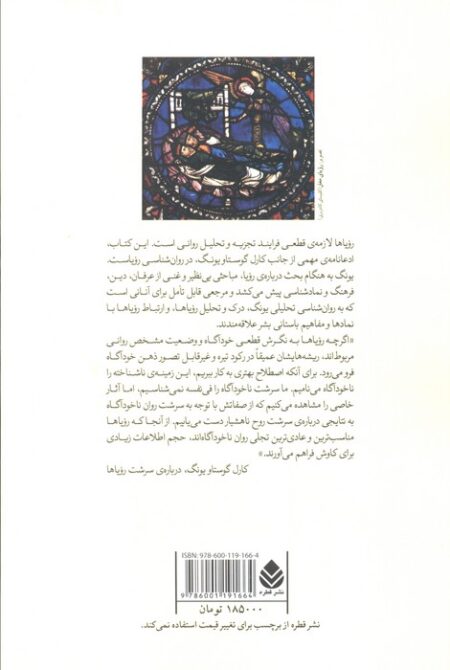 تصویر: رؤیای مغان
رؤیاها لازمه‌ی قطعی فرایند تجزیه و تحلیل روانی است. این کتاب،
ادعانامه‌ی مهمی از جانب کارل گوستاو یونگ، در روان‌شناسی رؤیاست.
یونگ به هنگام بحث درباره‌ی رؤیا، مباحثی بی‌نظیر و غنی از عرفان، دین،
فرهنگ و نمادشناسی پیش می‌کشد و مرجعی قابل تأمل برای آنانی است
که به روان‌شناسی تحلیلی یونگ، درک و تحلیل رؤیاها، و ارتباط رؤیاها با
نمادها و مفاهیم باستانی بشر علاقه‌مندند.
«اگرچه رؤیاها به نگرش قطعی خودآگاه و وضعیت مشخص روانی
مربوط‌اند، ریشه‌هایشان عمیقاً در رکود تیره و غیرقابل تصور ذهن خودآگاه
فرو می‌رود. برای آنکه اصطلاح بهتری به کار ببریم، این زمینه‌ی ناشناخته را
ناخودآگاه می‌نامیم. ما سرشت ناخودآگاه را فی‌نفسه نمی‌شناسیم، اما آثار
خاصی را مشاهده می‌کنیم که از صفاتش با توجه به سرشت روان ناخودآگاه
به نتایجی درباره‌ی سرشت روح ناهشیار دست می‌یابیم. از آنجا که رؤیاها
مناسب‌ترین و عادی‌ترین تجلی روان ناخودآگاه‌اند، حجم اطلاعات زیادی
برای کاوش فراهم می‌آورند.»
کارل گوستاو یونگ، درباره‌ی سرشت رؤیاها
ISBN: 978-600-119-166-4
9 786001 191664
نشر قطره
۱۸۵۰۰۰ تومان
نشر قطره از برچسب برای تغییر قیمت استفاده نمی‌کند.